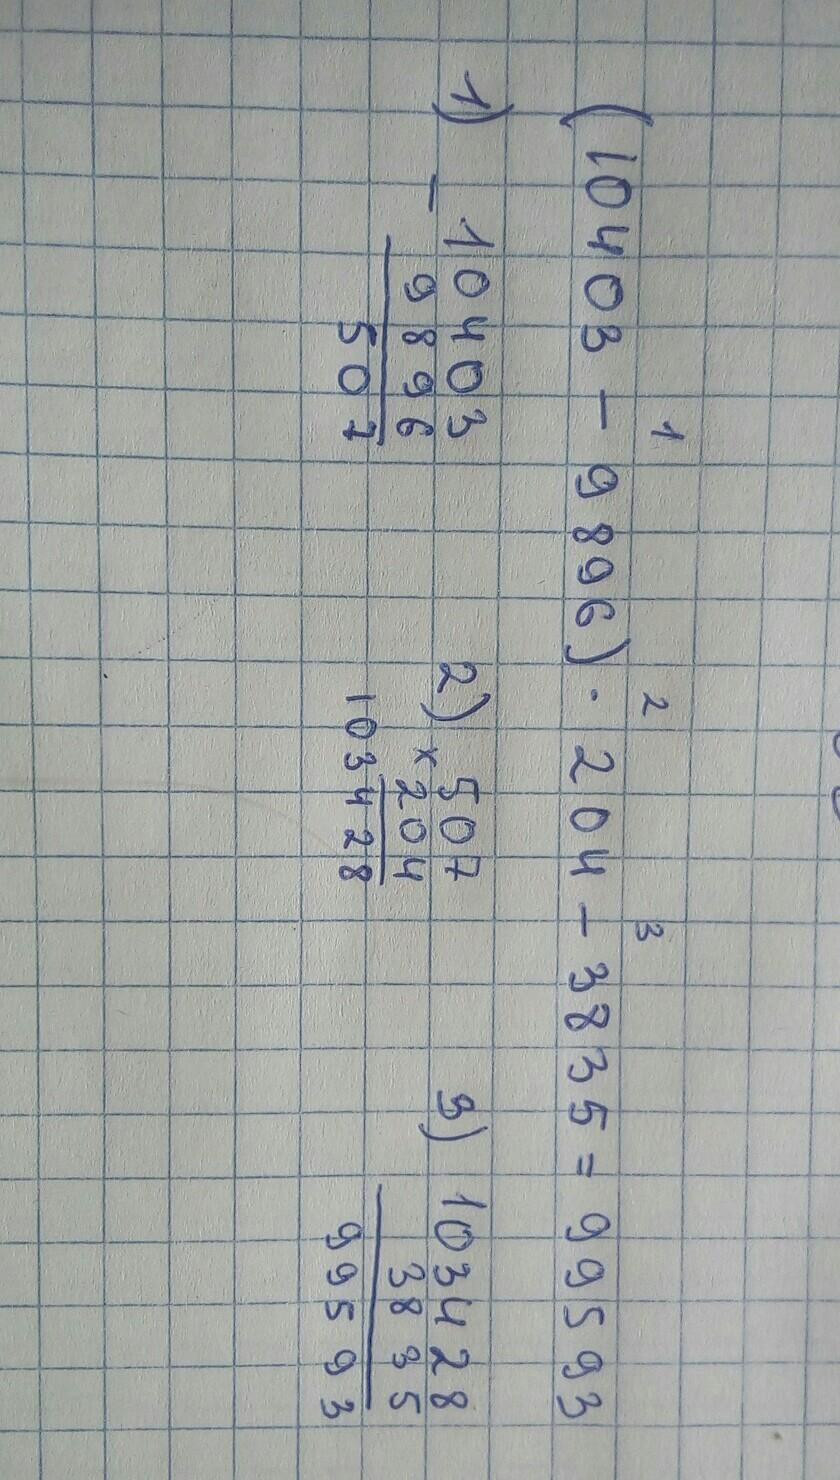 1 2 3
(10403 - 9896) · 204 - 3835 = 99593
1) - 10403
9896
507
2) × 507
204
103428
3) 103428
3835
99593